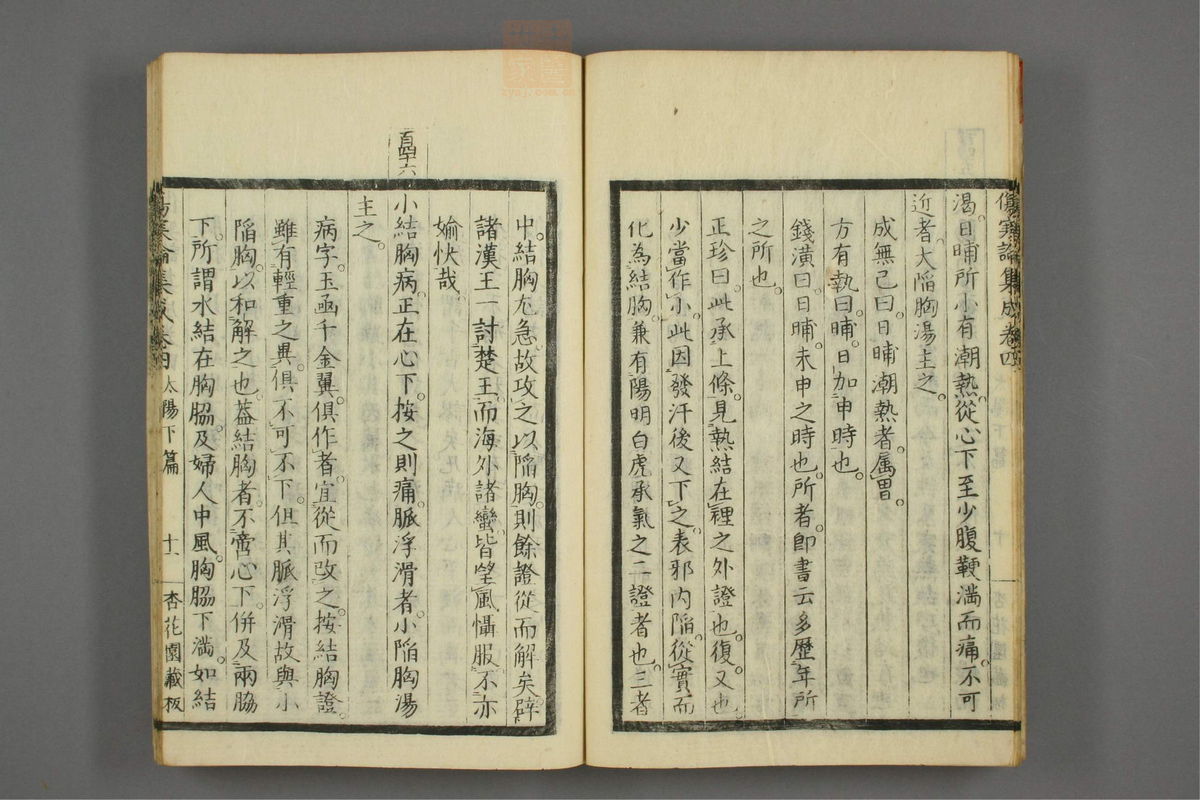 渴。日晡所小有潮熱。從心下至少腹鞕滿而痛。不可
近者。大陷胸湯主之。
成無己曰。日晡潮熱者。属胃。
方有執曰。晡。日加申時也。
錢潢曰。日晡未申之時也。所者。即書云多歷年所
之所也。
正珍曰。此承上條。見熱結在裡之外證也。復。又也。
少當作小。此因發汗後又下之。表邪內陷。從實而
化為結胸。兼有陽明白虎承氣之二證者也。三者
傷寒論集成卷四
中。結胸尤急。故攻之以陷胸。則餘證從而解矣。辟
諸漢王一討楚王。而海外諸蠻。皆望風懾服。不亦
愉快哉。
百四十六
小結胸病。正在心下。按之則痛。脈浮滑者。小陷胸湯
主之。
病字。玉函千金翼俱作者。宜從而改之。按結胸證。
雖有輕重之異。俱不可不下。但其脈浮滑。故與小
陷胸。以和解之也。蓋結胸者。不啻心下。併及兩脇
下。所謂水結在胸脇。及婦人中風。胸脇下滿。如結
傷寒論集成卷四 太陽下篇 十一 杏花園藏板